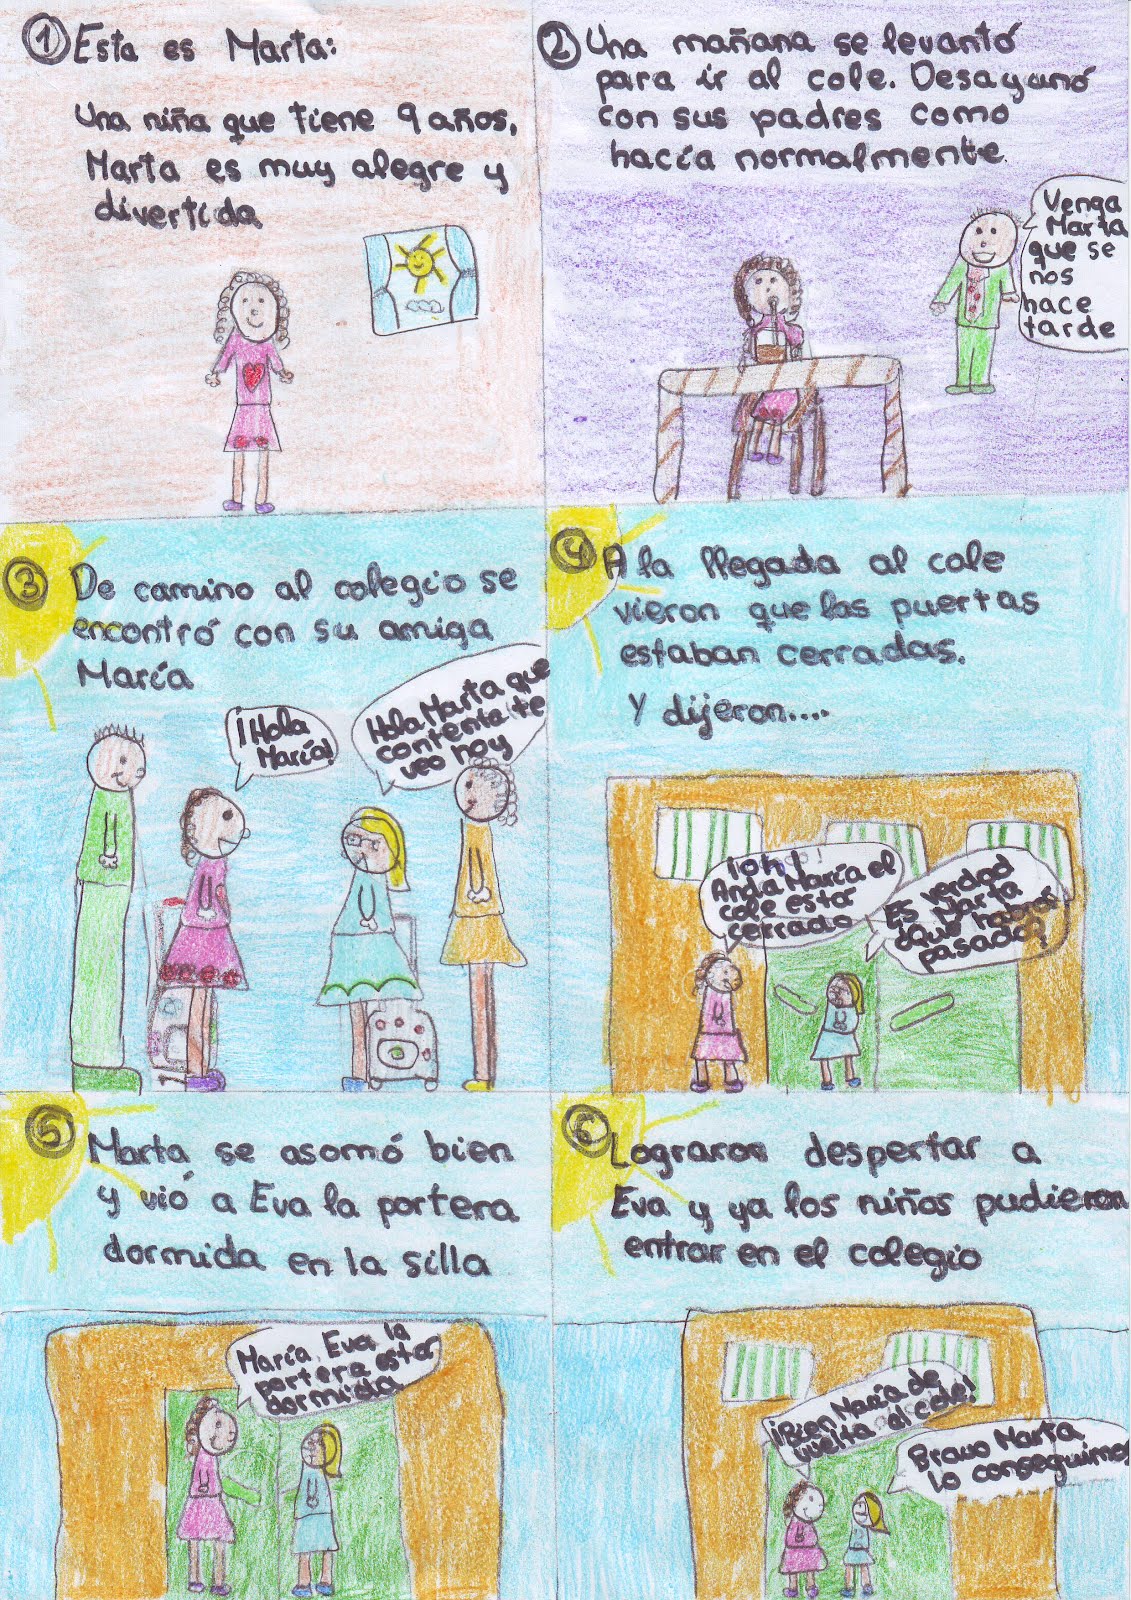 1 Esta es Marta:
Una niña que tiene 9 años,
Marta es muy alegre y
divertida
2 Una mañana se levantó
para ir al cole. Desayunó
con sus padres como
hacía normalmente.
Venga
Marta
que se
nos
hace
tarde
3 De camino al colegio se
encontró con su amiga
María
¡Hola
María!
Hola Marta que
contenta te
veo hoy
4 A la llegada al cole
vieron que las puertas
estaban cerradas.
Y dijeron....
¡Oh!
Anda María el
cole estar
cerrado
Es verdad
Marta
¿Que habrar
pasado?
5 Marta se asomó bien
y vió a Eva la portera
dormida en la silla
María, Eva la
portera estar
dormida
6 Lograron despertar a
Eva y ya los niños pudieron
entrar en el colegio
¡Bien María de
vuelta al cole!
Bravo Marta
lo conseguimos